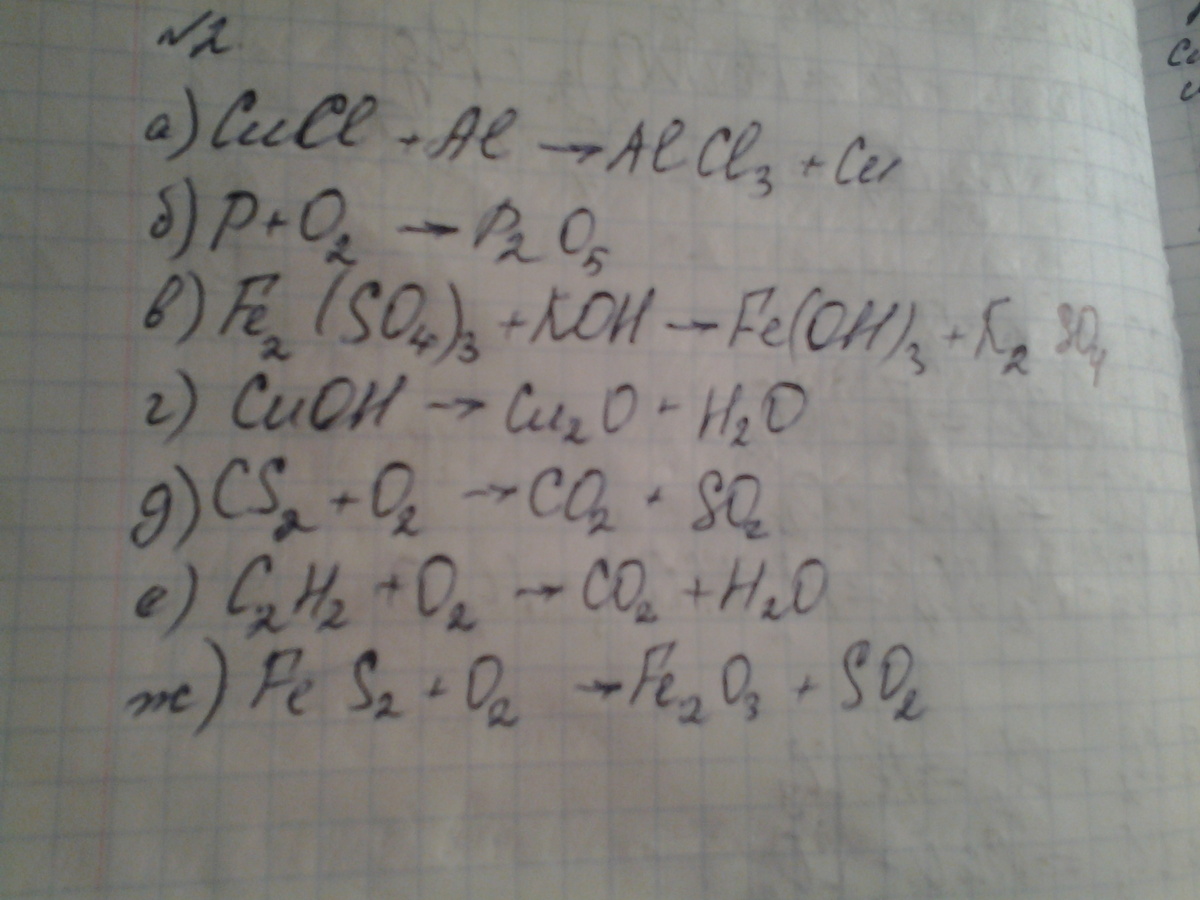 №2.
а) CuCl + Al → AlCl₃ + Cu
б) P + O₂ → P₂O₅
в) Fe₂(SO₄)₃ + KOH → Fe(OH)₃ + K₂SO₄
г) CuOH → Cu₂O + H₂O
д) CS₂ + O₂ → CO₂ + SO₂
е) C₂H₂ + O₂ → CO₂ + H₂O
ж) FeS₂ + O₂ → Fe₂O₃ + SO₂